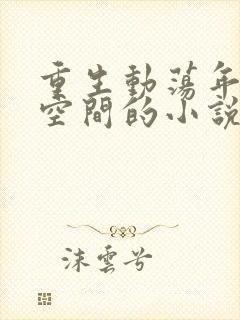 重生動蕩年
空間的小說
沫雲兮